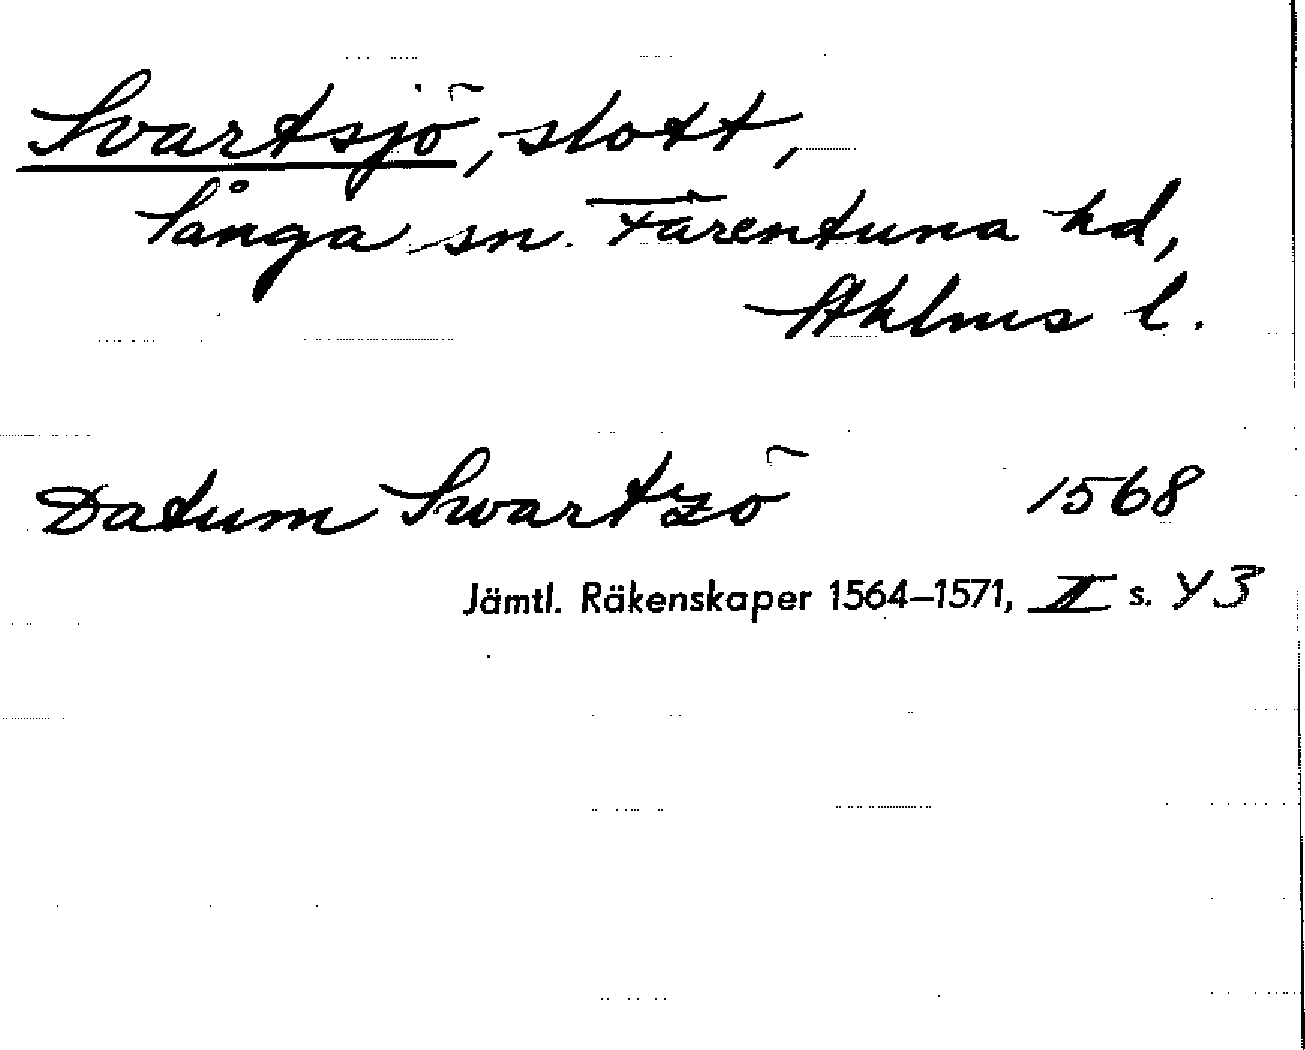 Svartsjö, slott,
Sånga sn. Färentuna hd,
Sthlms l.
Datum Swartzö 1568
Jämtl. Räkenskaper 1564–1571, II s. 43